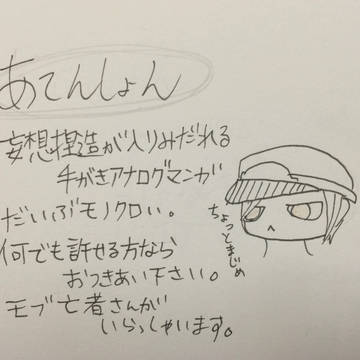 あてんしょん
妄想捏造が入りみだれる
手がきアナログマンガ
だいぶモノクロい。
何でも許せる方なら
おつきあい下さい。
モブ亡者さんが
いらっしゃいます。
ちょっとまじめ